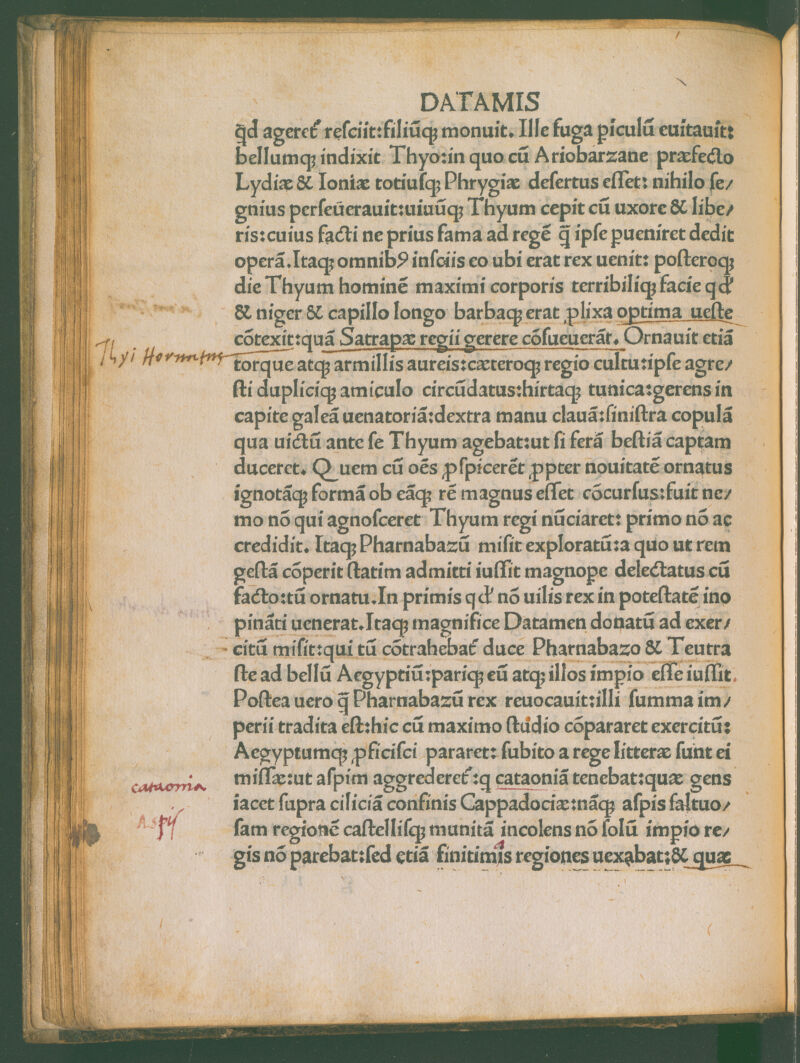 DATAMIS
q̄d ageret᷑ reſciit:filiūq; monuit. Ille fuga piculū euitauit:
bellumq; indixit Thyo:in quo cū Ariobarzane præfecto
Lydiæ & Ioniæ totiuſq; Phrygiæ deſertus eſſet: nihilo ſe/
gnius perſeuerauit:uiuūq; Thyum cepit cū uxore & libe/
ris:cuius facti ne prius fama ad regē q̄ ipſe pueniret dedit
operā.Itaq; omnibꝰ inſciis eo ubi erat rex uenit: poſteroq;
die Thyum hominē maximi corporis terribiliq; facie qď
& niger & capillo longo barbaq; erat ꝓlixa optima ueſte
cōtexit:quā Satrapæ regii gerere cōſueuerāt. Ornauit etiā
Thyi
torque atq; armillis aureis:cæteroq; regio cultu:ipſe agre/
ſti dupliciq; amiculo circūdatus:hirtaq; tunica:gerens in
capite galeā uenatoriā:dextra manu clauā:ſiniſtra copulā
qua uictū ante ſe Thyum agebat:ut ſi ferā beſtiā captam
duceret. Quem cū oēs ꝓſpicerēt ꝓpter nouitatē ornatus
ignotāq; formā ob eāq; rē magnus eſſet cōcurſus:fuit ne/
mo nō qui agnoſceret Thyum regi nūciaret: primo nō ac
credidit. Itaq; Pharnabazū miſit exploratū:a quo ut rem
geſtā cōperit ſtatim admitti iuſſit magnope delectatus cū
facto:tū ornatu.In primis qď nō uilis rex in poteſtatē ino
pināti uenerat.Itaq; magnifice Datamen donatū ad exer/
citū miſit:qui tū cōtrahebat᷑ duce Pharnabazo & Teutra
ſte ad bellū Aegyptiū:pariq; eū atq; illos impio eſſe iuſſit.
Poſtea uero q̄ Pharnabazū rex reuocauit:illi ſumma im/
perii tradita eſt:hic cū maximo ſtudio cōpararet exercitū:
Aegyptumq; ꝓficiſci pararet: ſubito a rege litteræ ſunt ei
miſſæ:ut aſpim aggrederet᷑:q cataoniā tenebat:quæ gens
cataonia
iacet ſupra ciliciā confinis Cappadociæ:nāq; aſpis ſaltuo/
Aspis
ſam regionē caſtelliſq; munitā incolens nō ſolū impio re/
gis nō parebat:ſed etiā finitimis regiones uexabat:& quæ